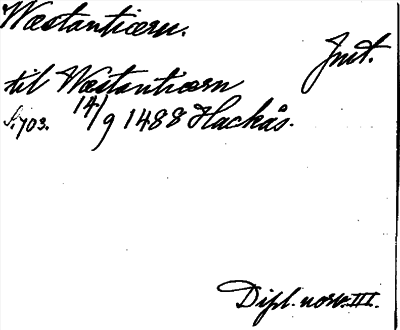 Wæstantiærn.
Jmt.
til Wæstantiærn
S. 703. 14/9 1488 Hackås.
Dipl. norv. III.